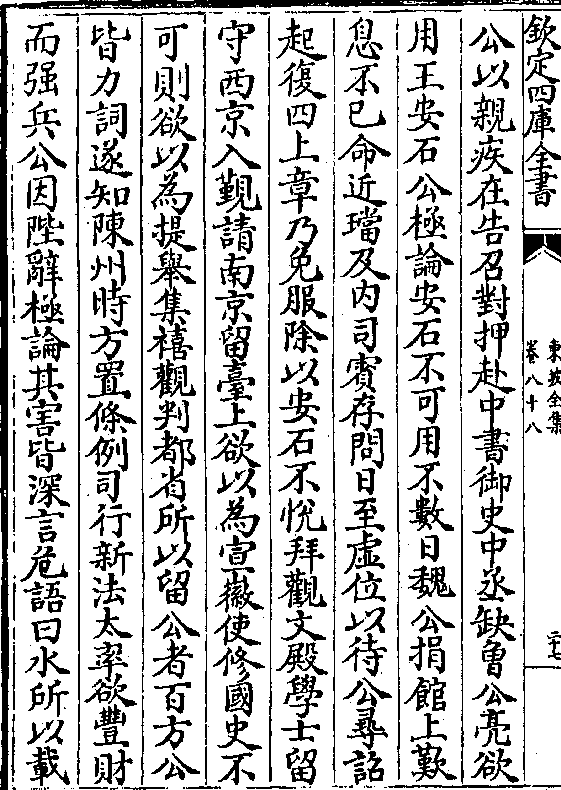 欽定四庫全書
東坡全集
卷八十八
二十七
公以親疾在告召對押赴中書御史中丞缺曾公亮欲
用王安石公極論安石不可用不數日魏公捐館上歎
息不已命近璫及内司賓存問日至虛位以待公尋詔
起復四上章乃免服除以安石不悅拜觀文殿學士留
守西京入覲請南京留臺上欲以為宣徽使修國史不
可則欲以為提舉集禧觀判都省所以留公者百方公
皆力詞遂知陳州時方置條例司行新法太率欲豐財
而强兵公因陛辭極論其害皆深言危語曰水所以載